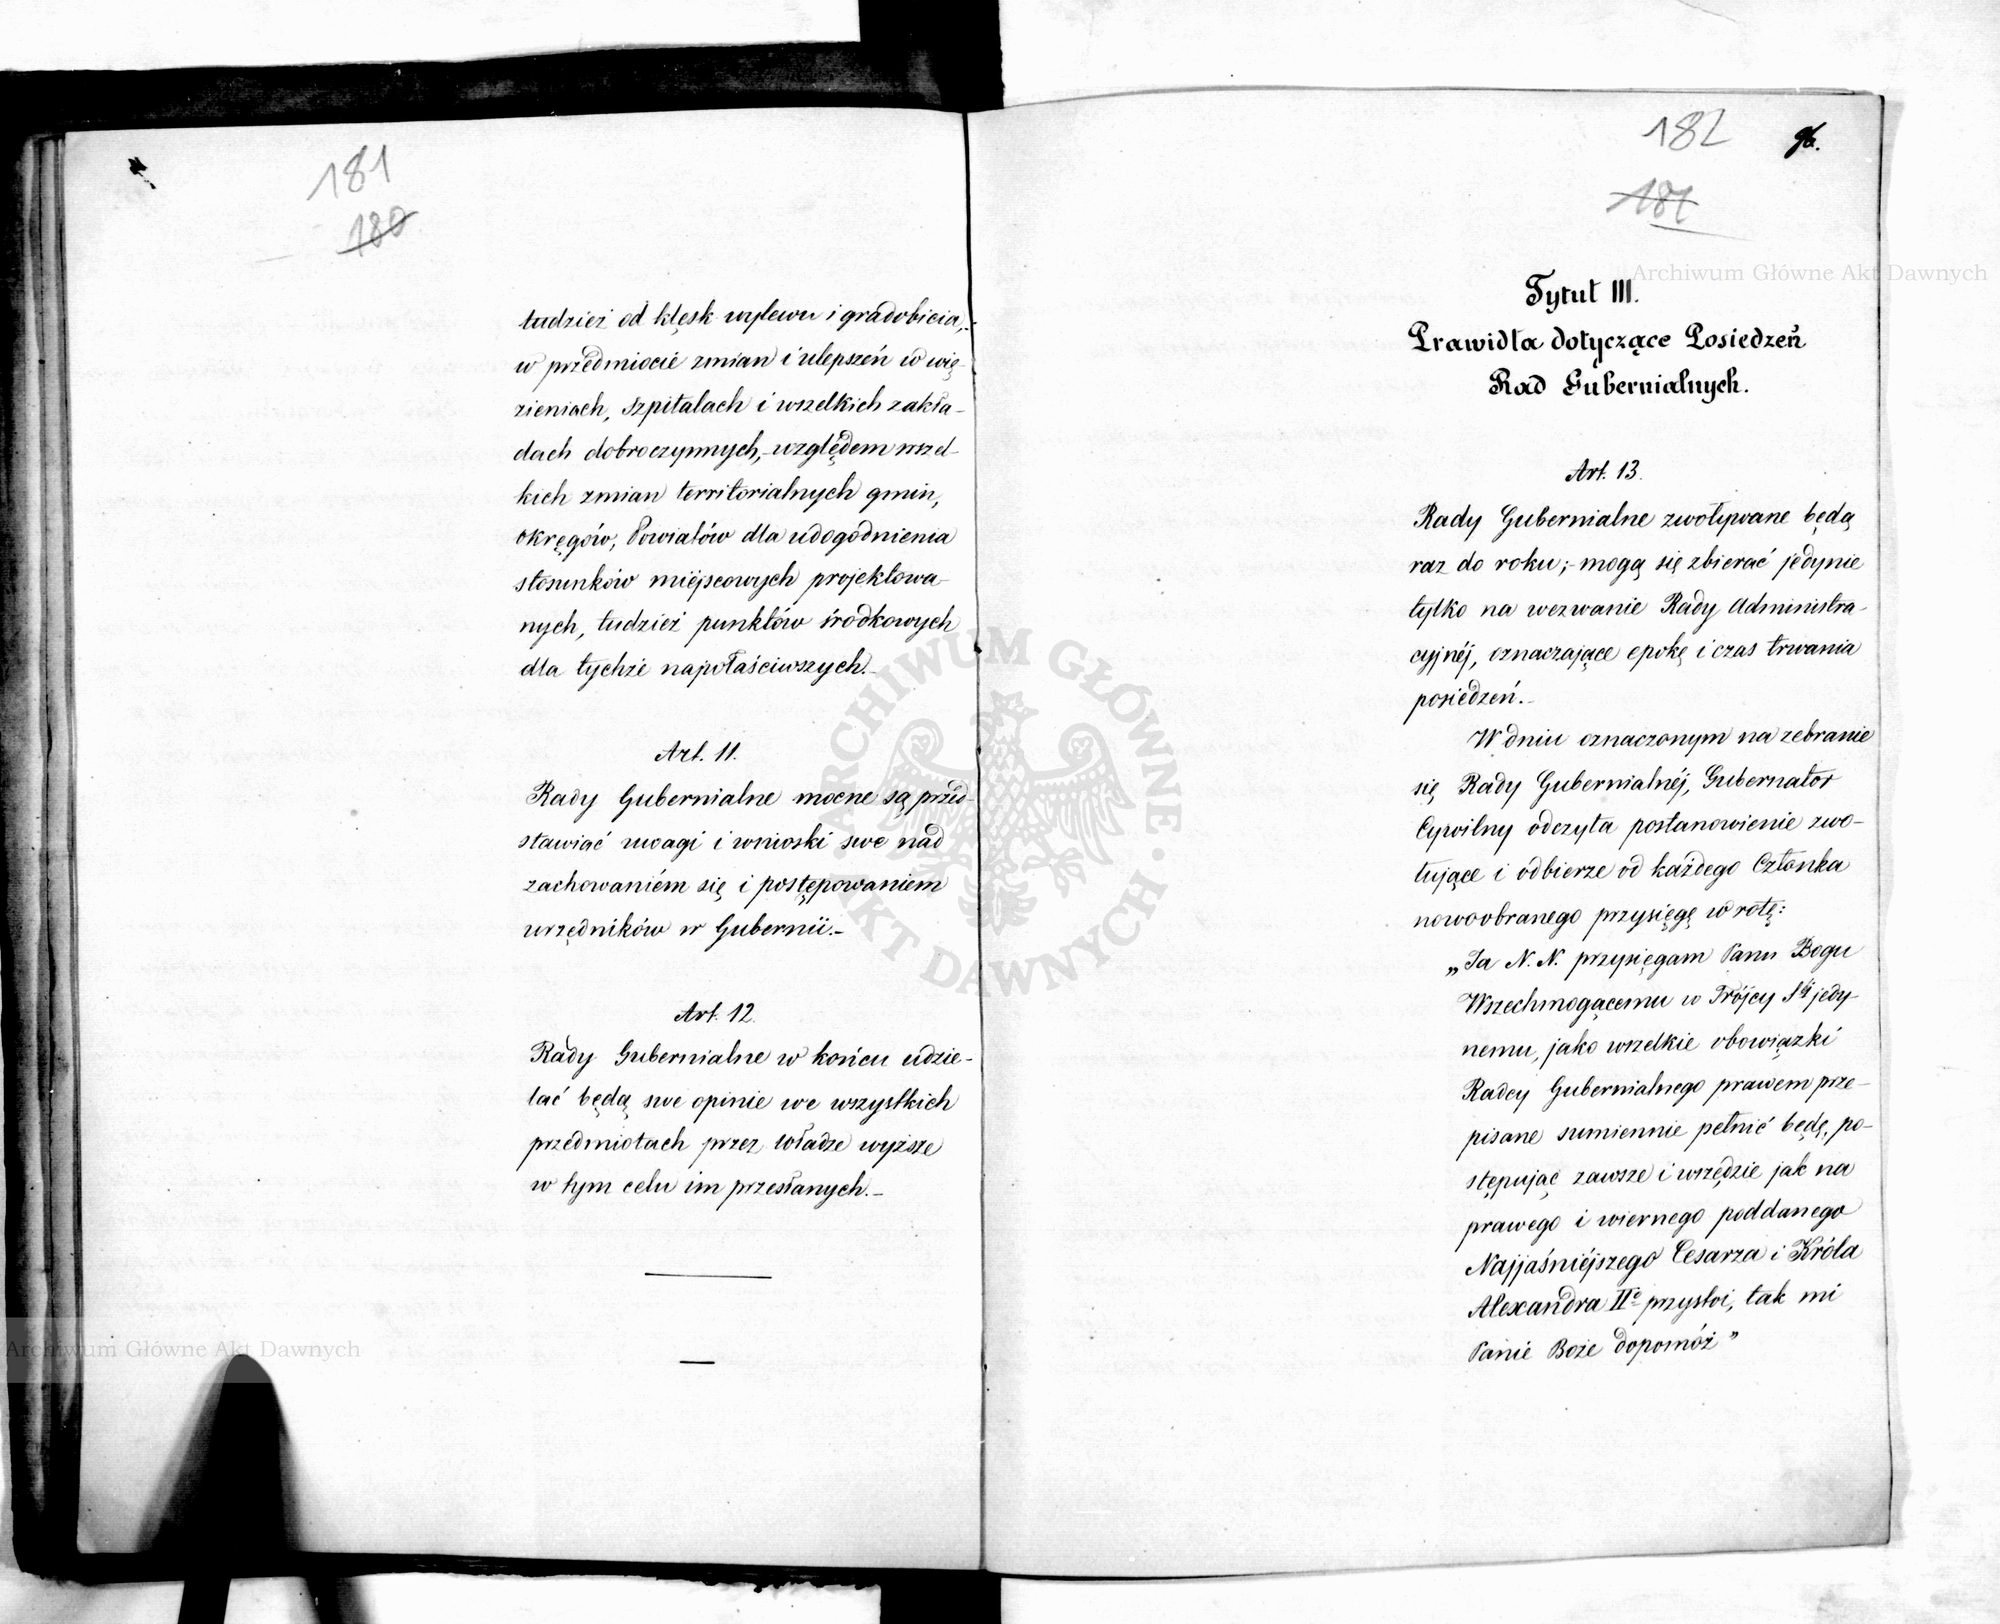 181
180
tudzież od klęsk wylewu i gradobicia,-
w przedmiocie zmian i ulepszeń w wię-
zieniach, szpitalach i wszelkich zakła-
dach dobroczynnych,- względem wszel-
kich zmian territorialnych gmin,
okręgów, Powiatów dla udogodnienia
stosunków miéjscowych projektowa-
nych, tudzież punktów środkowych
dla tychże napołaściwszych.-
Art. 11.
Rady Gubernialne mocne są przed-
stawiać uwagi i wnioski swe nad
zachowaniém się i postępowaniem
urzędników w Gubernii.-
Art. 12.
Rady Gubernialne w końcu udzie-
lać będą swe opinie we wszystkich
przedmiotach przez Władze wyższe
w tym celu im przesłanych.-
182
96.
181
Tytuł III.
Prawidła dotyczące Posiedzeń
Rad Gubernialnych.
Art. 13.
Rady Gubernialne zwoływane będą
raz do roku;- mogą się zbierać jedynie
tylko na wezwanie Rady Administra-
cyjnéj, oznaczające epokę i czas trwania
posiedzeń.-
W dniu oznaczonym na zebranie
się Rady Gubernialnéj, Gubernator
Cywilny odczyta postanowienie zwo-
łujące i odbierze od każdego Członka
nowoobranego przysięgę w rotę:
„Ja N. N. przysięgam Panu Bogu
Wszechmogącemu w Trójcy Sej jedy-
nemu, jako wszelkie obowiązki
Radcy Gubernialnego prawem prze-
pisane sumiennie pełnić będę, po-
stępując zawsze i wszędzie jak na
prawego i wiernego poddanego
Najjaśniéjszego Cesarza i Króla
Alexandra IIo przystoi, tak mi
Panie Boże dopomóż”
Archiwum Główne Akt Dawnych
Archiwum Główne Akt Dawnych
ARCHIWUM GŁÓWNE AKT DAWNYCH